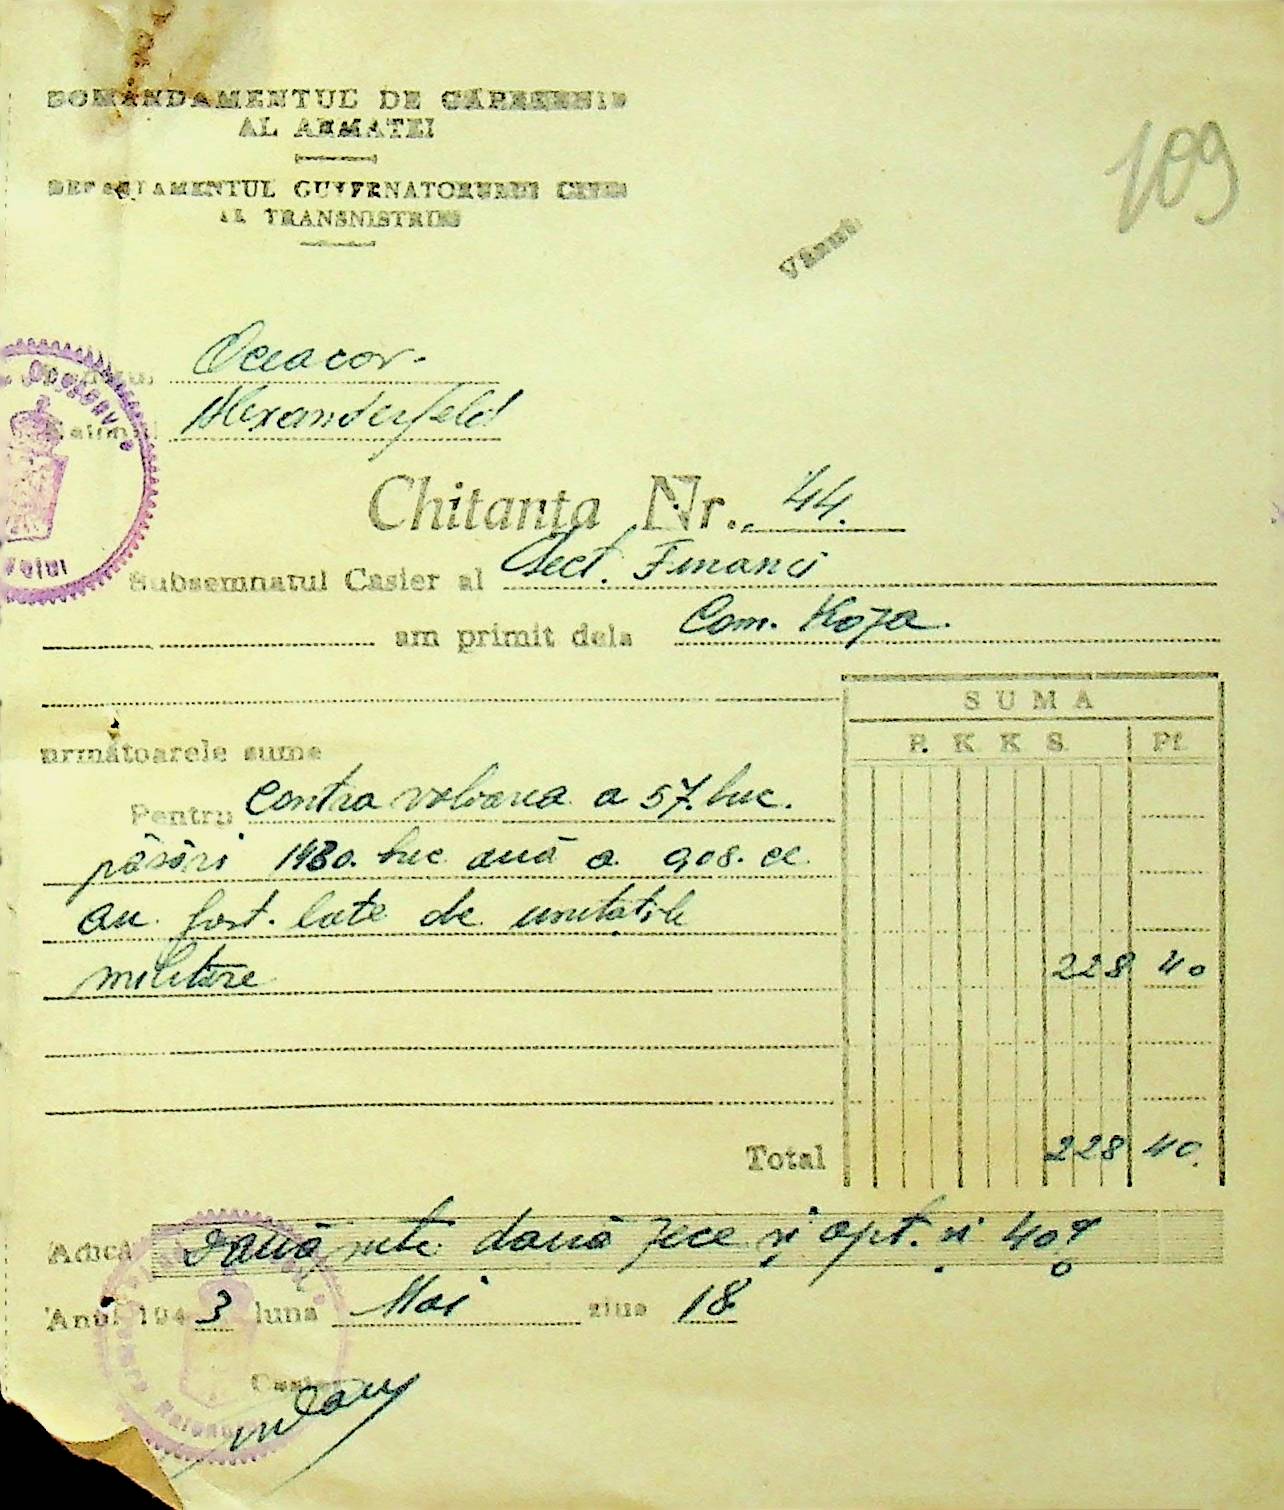 COMANDAMENTUL DE CĂPETENIE
AL ARMATEI
109
DEPARTAMENTUL GUVERNATORULUI CIVIL
AL TRANSNISTRIEI
Văzut
Județul Oceacov.
Raionul Alexanderfeld
Chitanța Nr. 44.
Subsemnatul Casier al Sect. Financi
am primit dela Com. Koja.
SUMA
următoarele sume
R. K. K. S. Pf.
Pentru Contra valoarea a 57. buc.
păsări 1980. buc ouă a 908. ce
au fost. late de unitățile
militare 228 40
Total 228 40.
Adică Două sute două zece și opt. și 40%
Anul 1943 luna Mai ziua 18.
Casier